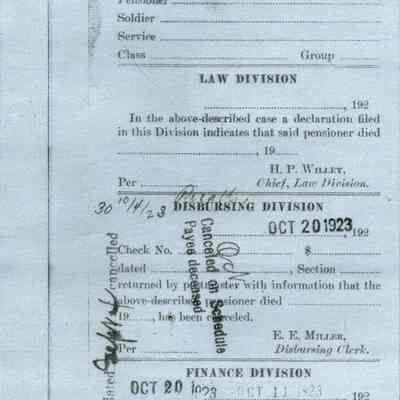 Pensioner
Soldier
Service
Class Group
LAW DIVISION
, 192
In the above-described case a declaration filed
in this Division indicates that said pensioner died
, 19
H. P. WILLEY,
Per Chief, Law Division.
30 10/4/23 DISBURSING DIVISION
OCT 20 1923, 192
Check No. $
dated , Section
returned by postmaster with information that the
above-described pensioner died
19 , has been canceled.
Canceled on Schedule
Payee deceased
cancelled
E. E. MILLER,
Per Disbursing Clerk.
FINANCE DIVISION
OCT 20 1923 OCT 11 1923